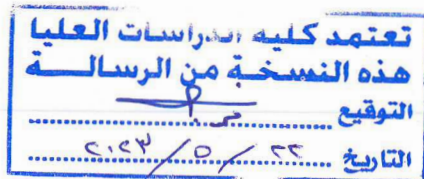 تعتمد كلية الدراسات العليا
هذه النسخة من الرسالــة
التوقيع
التاريخ ٢٢/٥/٢٠٢٣